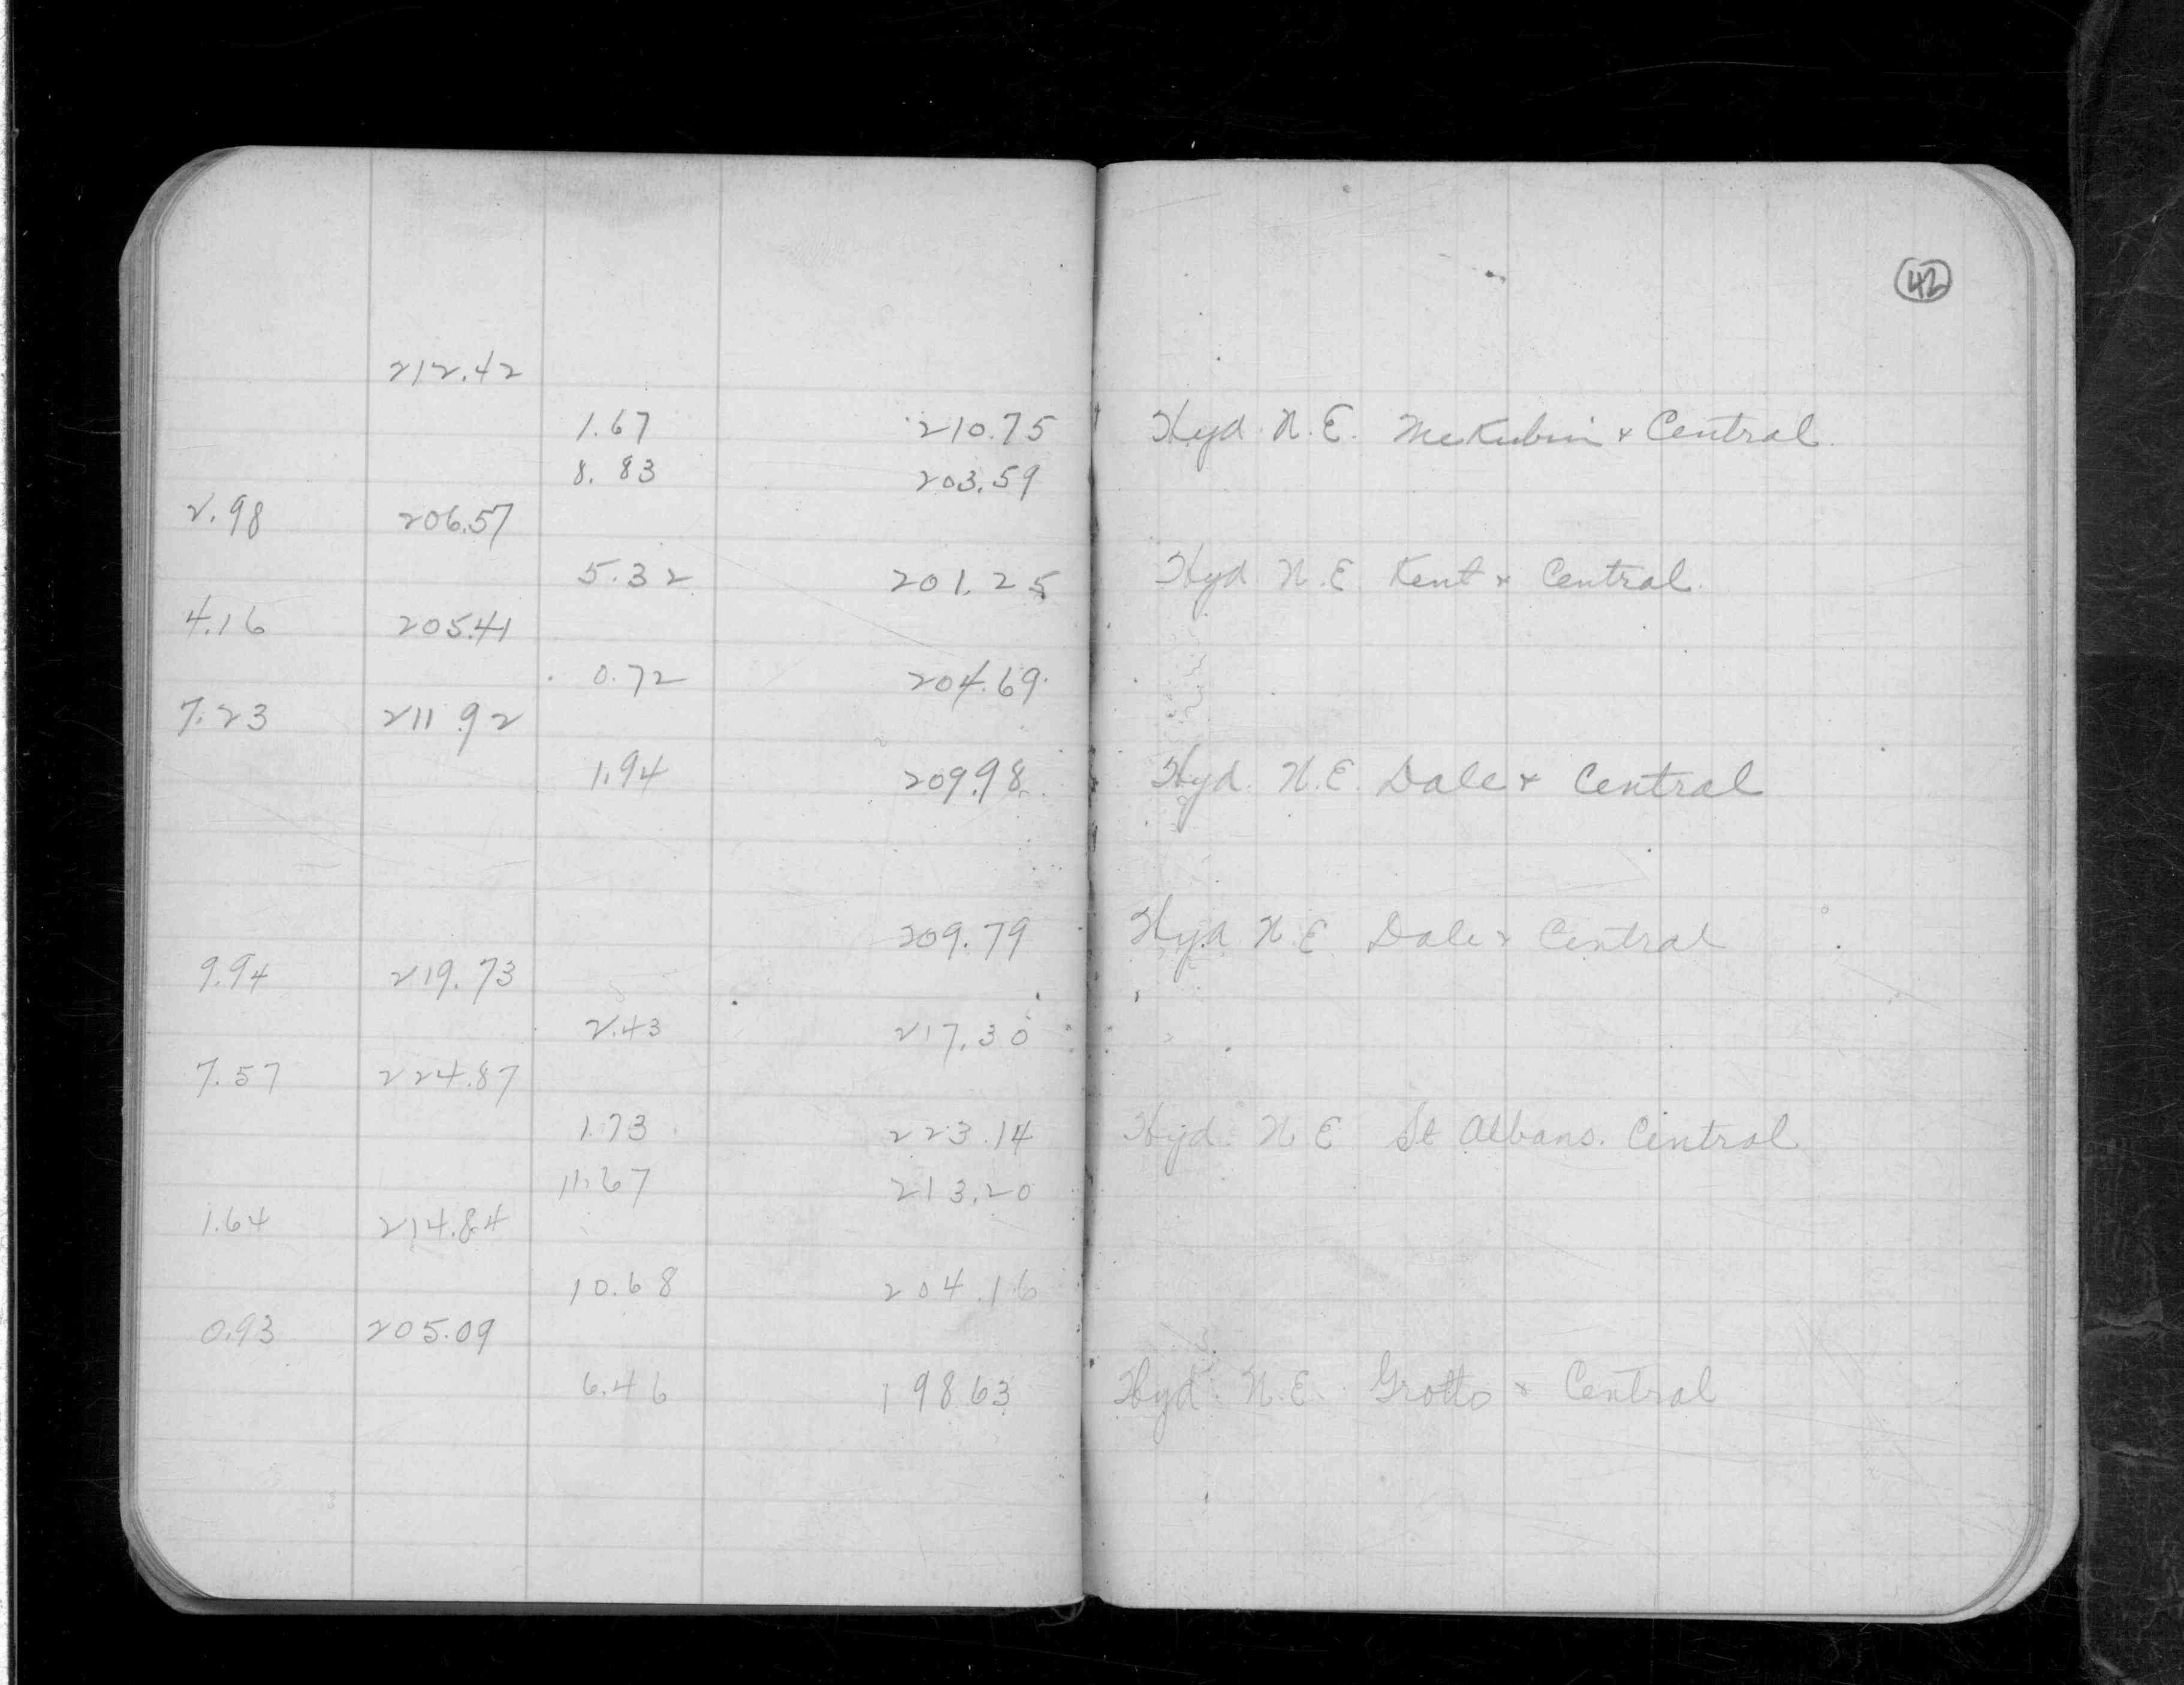 42
212.42
1.67 210.75 Hyd. N.E. McKubin & Central.
8.83 203.59
2.98 206.57
5.32 201.25 Hyd N.E. Kent & Central.
4.16 205.41
0.72 204.69
7.23 211.92
1.94 209.98 Hyd. N.E. Dale & Central
209.79 Hyd N.E Dale & Central
9.94 219.73
2.43 217.30
7.57 224.87
1.73 223.14 Hyd. N E St Albans. Central
11.67 213.20
1.64 214.84
10.68 204.16
0.93 205.09
6.46 198.63 Hyd. N.E. Grotto & Central